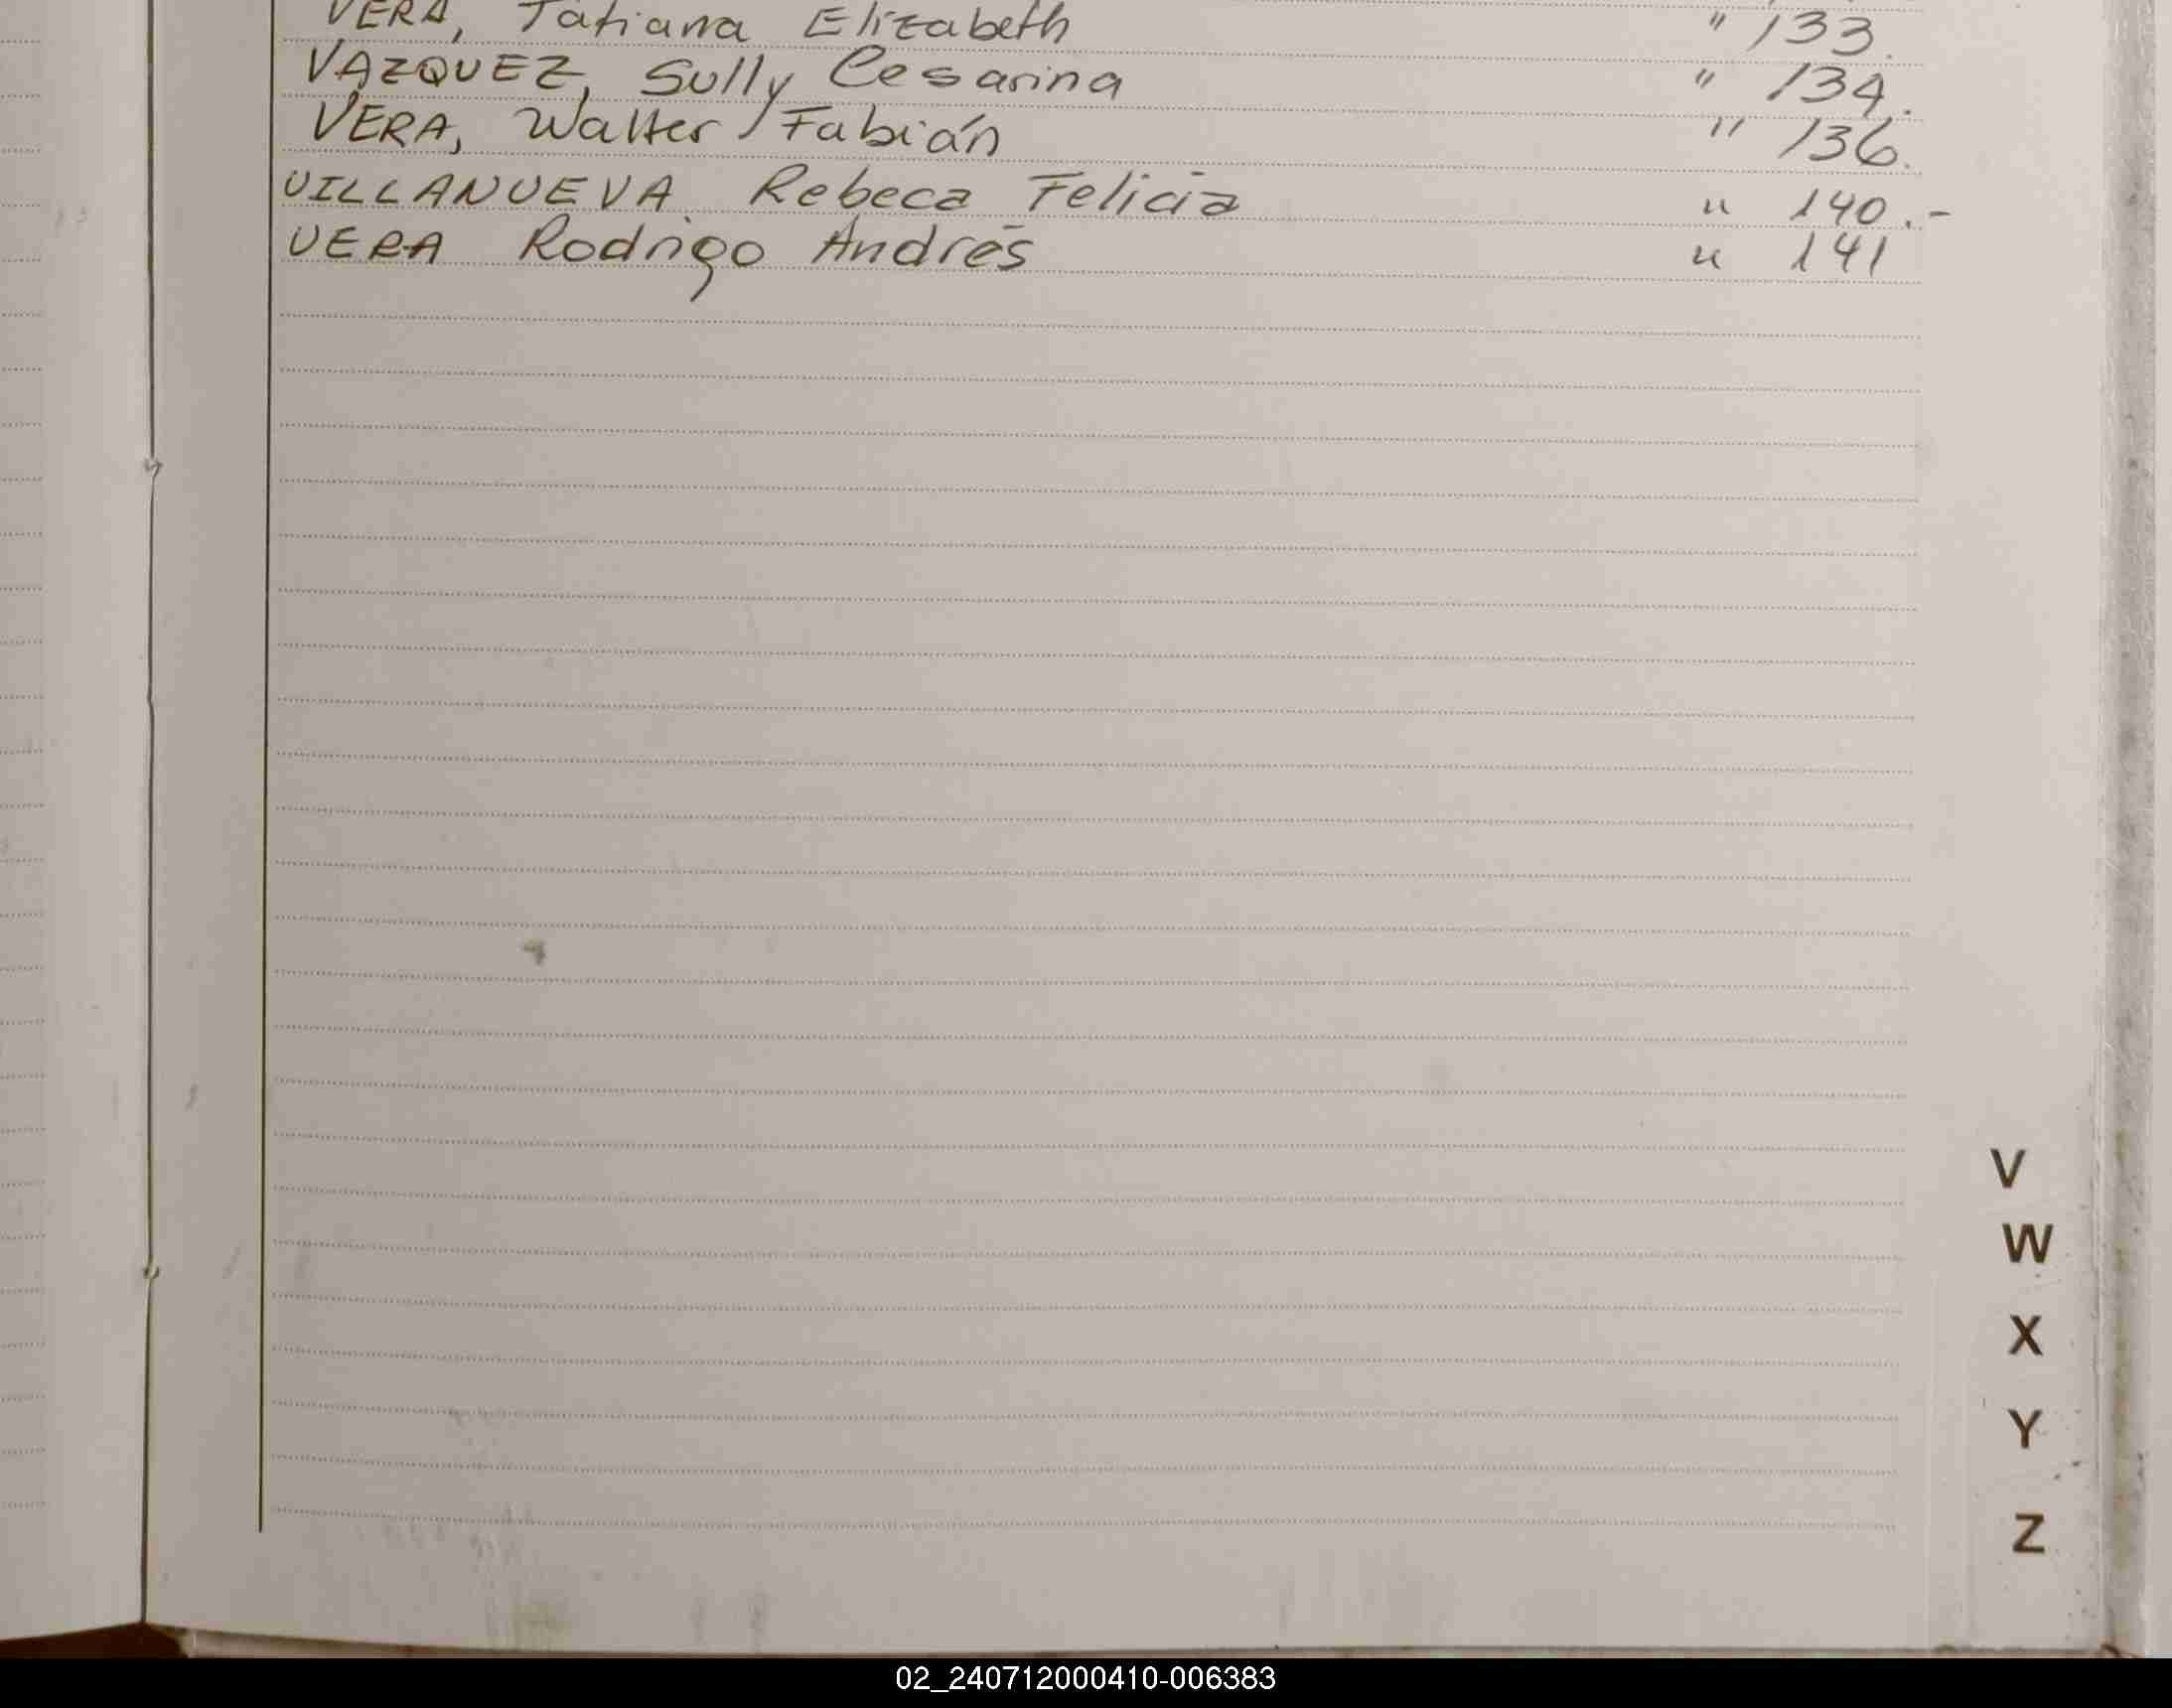 VERA, Tatiana Elizabeth " 133.
VAZQUEZ, Sully Cesarina " 134.
VERA, Walter Fabián " 136.
VILLANUEVA Rebeca Felicia " 140.-
VERA Rodrigo Andrés " 141
V
W
X
Y
Z
02_240712000410-006383